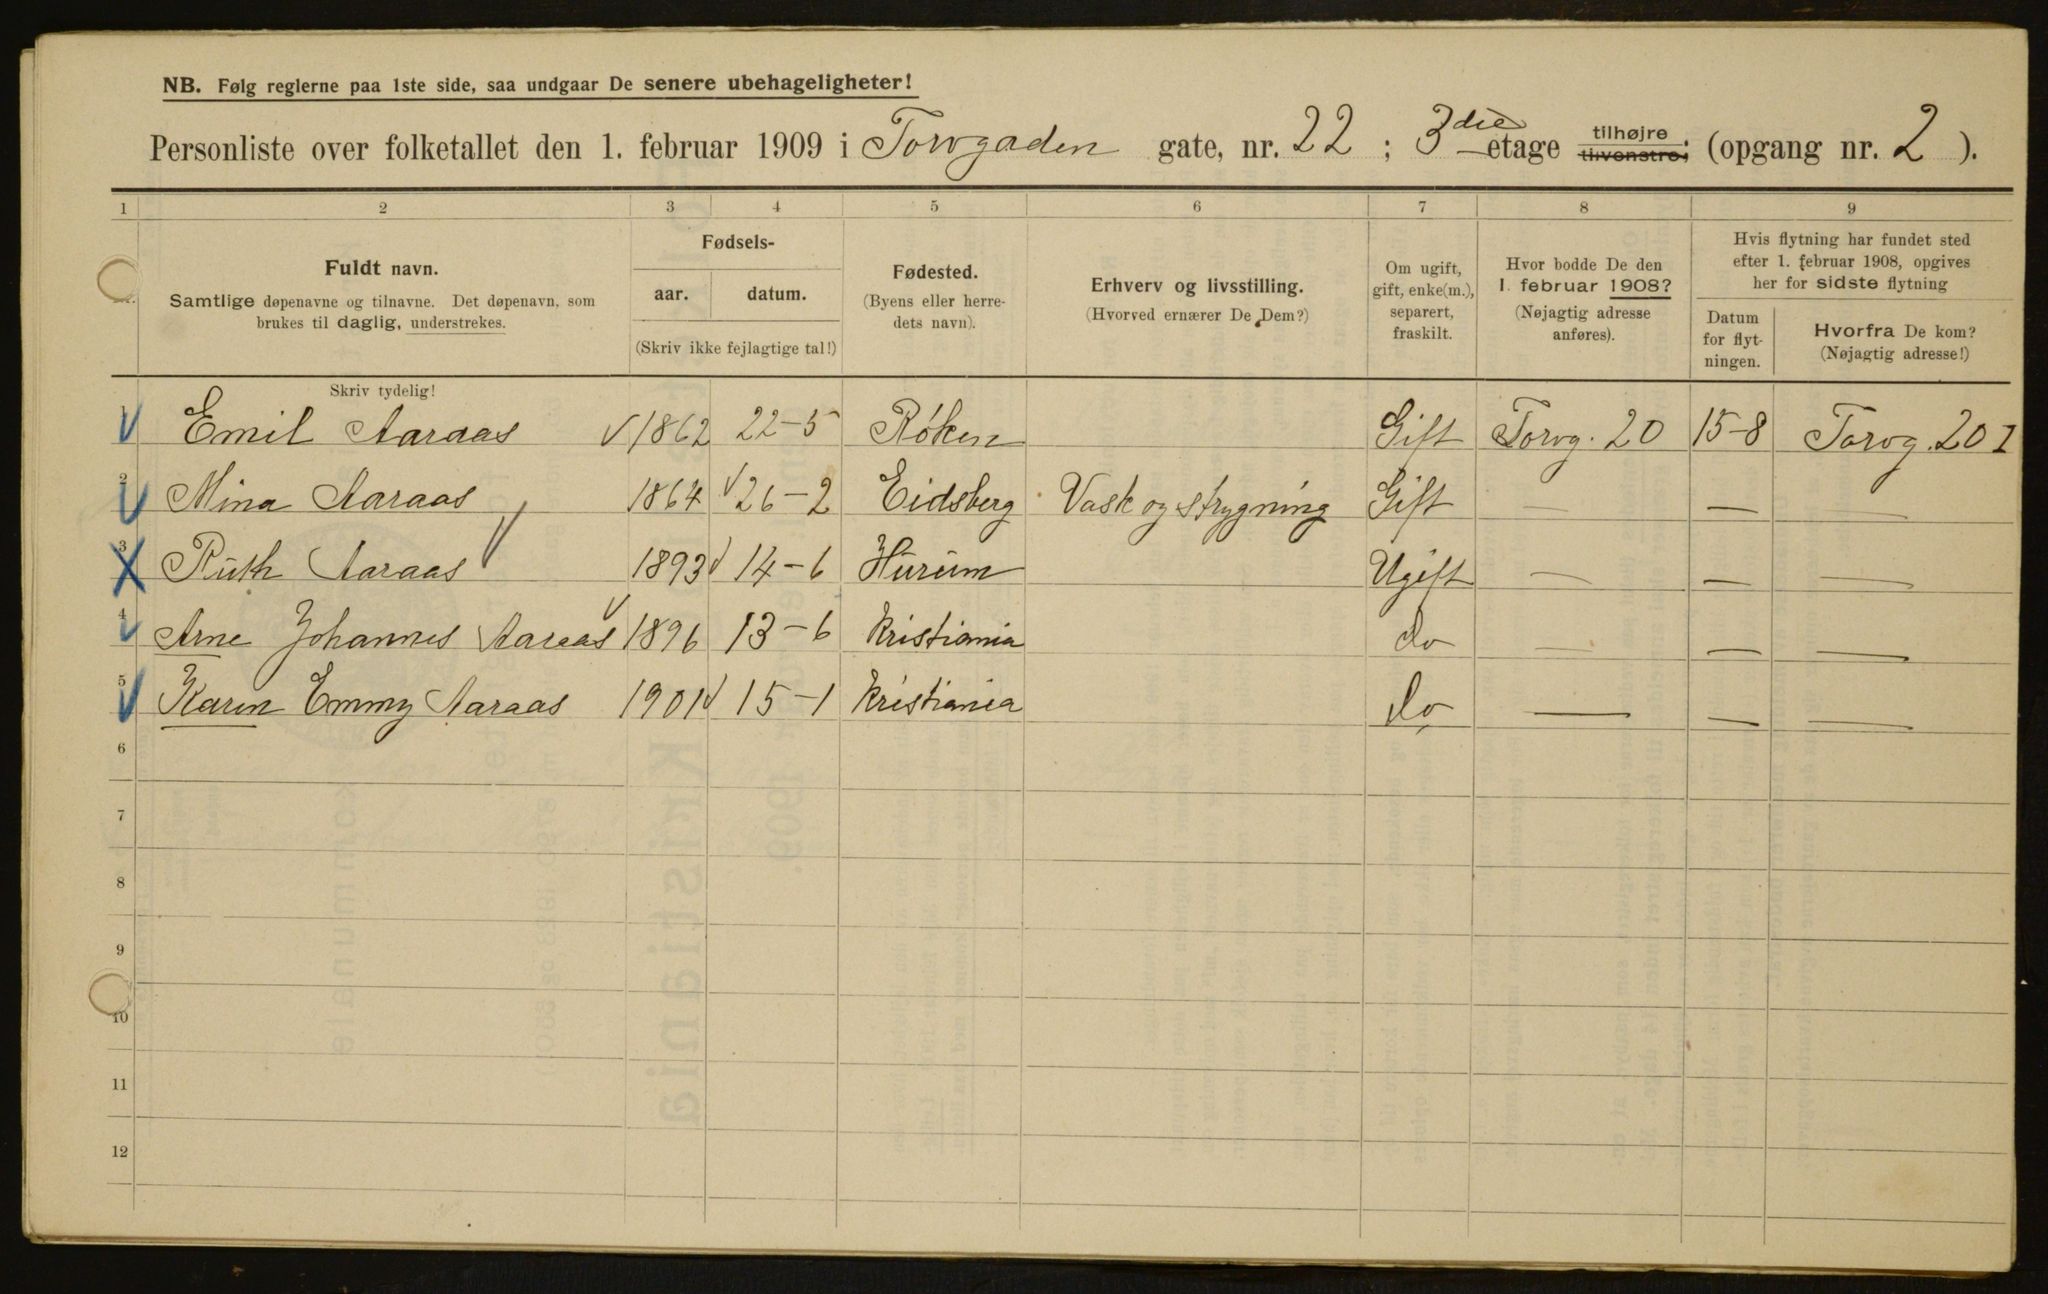 NB. Følg reglerne paa 1ste side, saa undgaar De senere ubehageligheter!
Personliste over folketallet den 1. februar 1909 i Torvgaden gate, nr. 22 ; 3die etage tilhøjre tilvenstre; (opgang nr. 2 ).
1 2 3 4 5 6 7 8 9
Fuldt navn.
Samtlige døpenavne og tilnavne. Det døpenavn, som
brukes til daglig, understrekes.
Skriv tydelig!
Fødsels-
aar. datum.
(Skriv ikke fejlagtige tal!)
Fødested.
(Byens eller herre-
dets navn).
Erhverv og livsstilling.
(Hvorved ernærer De Dem?)
Om ugift,
gift, enke(m.),
separert,
fraskilt.
Hvor bodde De den
1. februar 1908?
(Nøjagtig adresse
anføres).
Hvis flytning har fundet sted
efter 1. februar 1908, opgives
her for sidste flytning
Datum
for flyt-
ningen.
Hvorfra De kom?
(Nøjagtig adresse!)
1 Emil Aaraas 1862 22-5 Røken Gift Torvg. 20 15-8 Torvg. 20 I
2 Mina Aaraas 1864 26-2 Eidsberg Vask og strygning Gift — — —
3 Ruth Aaraas 1893 14-6 Hurum Ugift — — —
4 Arne Johannes Aaraas 1896 13-6 Kristiania do — — —
5 Karen Emmy Aaraas 1901 15-1 Kristiania do — — —
6
7
8
9
10
11
12